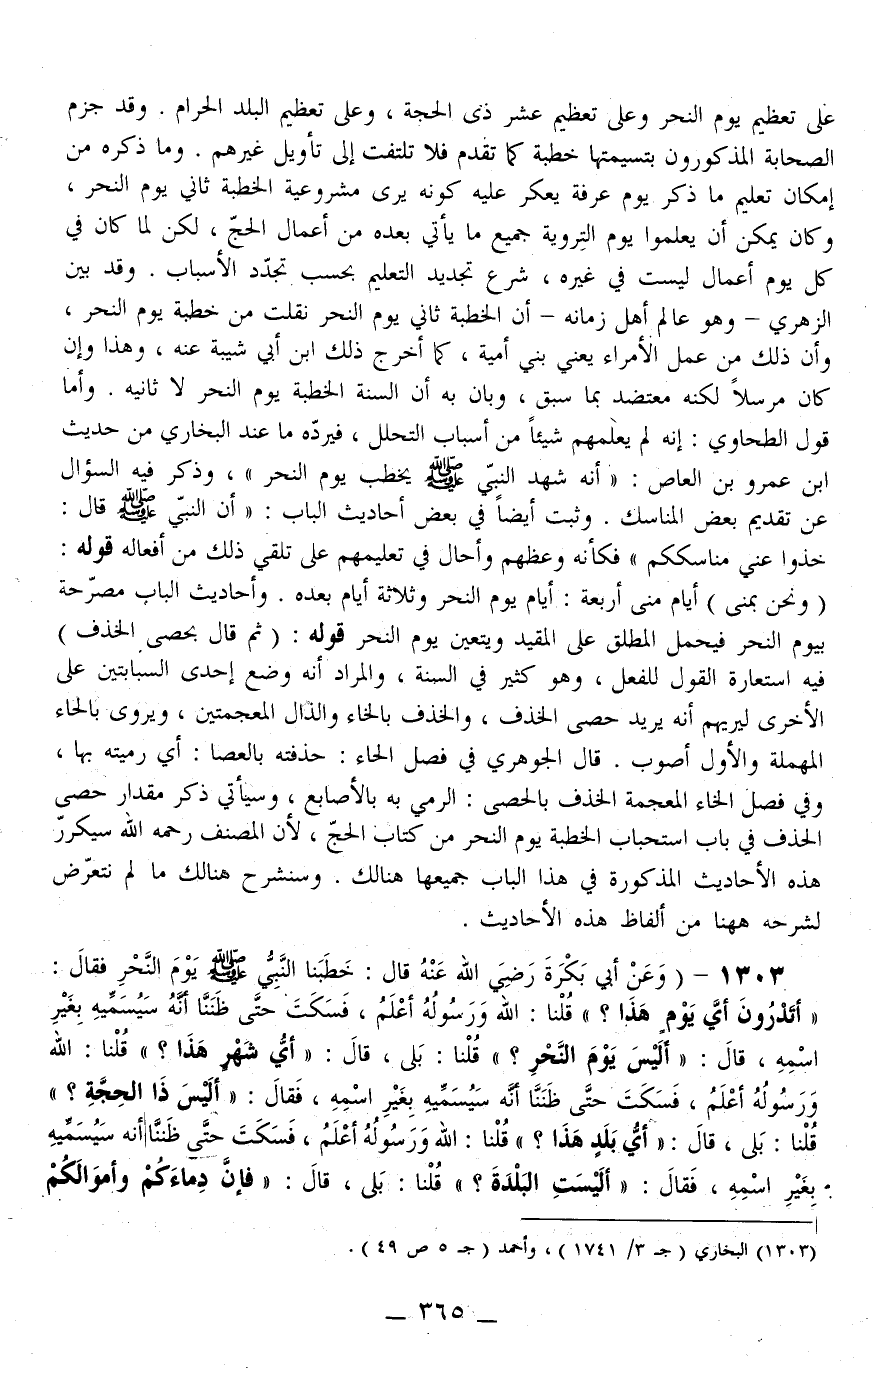 على تعظيم يوم النحر وعلى تعظيم عشر ذى الحجة ، وعلى تعظيم البلد الحرام . وقد جزم
الصحابة المذكورون بتسيمتها خطبة كما تقدم فلا تلتفت إلى تأويل غيرهم . وما ذكره من
إمكان تعليم ما ذكر يوم عرفة يعكر عليه كونه يرى مشروعية الخطبة ثاني يوم النحر ،
وكان يمكن أن يعلموا يوم التروية جميع ما يأتي بعده من أعمال الحجّ ، لكن لما كان في
كل يوم أعمال ليست في غيره ، شرع تجديد التعليم بحسب تجدّد الأسباب . وقد بين
الزهري – وهو عالم أهل زمانه – أن الخطبة ثاني يوم النحر نقلت من خطبة يوم النحر ،
وأن ذلك من عمل الأمراء يعني بني أمية ، كما أخرج ذلك ابن أبي شيبة عنه ، وهذا وإن
كان مرسلاً لكنه معتضد بما سبق ، وبان به أن السنة الخطبة يوم النحر لا ثانيه . وأما
قول الطحاوي : إنه لم يعلمهم شيئاً من أسباب التحلل ، فيردّه ما عند البخاري من حديث
ابن عمرو بن العاص : « أنه شهد النبيّ ﷺ يخطب يوم النحر » ، وذكر فيه السؤال
عن تقديم بعض المناسك . وثبت أيضاً في بعض أحاديث الباب : « أن النبيّ ﷺ قال :
خذوا عني مناسككم » فكأنه وعظهم وأحال في تعليمهم على تلقي ذلك من أفعاله قوله :
( ونحن بمنى ) أيام منى أربعة : أيام يوم النحر وثلاثة أيام بعده . وأحاديث الباب مصرّحة
بيوم النحر فيحمل المطلق على المقيد ويتعين يوم النحر قوله : ( ثم قال بحصى الخذف )
فيه استعارة القول للفعل ، وهو كثير في السنة ، والمراد أنه وضع إحدى السبابتين على
الأخرى ليريهم أنه يريد حصى الخذف ، والخذف بالخاء والذال المعجمتين ، ويروى بالحاء
المهملة والأول أصوب . قال الجوهري في فصل الحاء : حذفته بالعصا : أي رميته بها ،
وفي فصل الخاء المعجمة الخذف بالحصى : الرمي به بالأصابع ، وسيأتي ذكر مقدار حصى
الخذف في باب استحباب الخطبة يوم النحر من كتاب الحجّ ، لأن المصنف رحمه الله سيكررّ
هذه الأحاديث المذكورة في هذا الباب جميعها هنالك . وسنشرح هنالك ما لم نتعرّض
لشرحه ههنا من ألفاظ هذه الأحاديث .
١٣٠٣ – ( وَعَنْ أبي بَكْرَةَ رَضِيَ الله عَنْهُ قال : خَطَبَنا النَّبِيُّ ﷺ يَوْمَ النَّحْرِ فقالَ :
« أتَدْرُونَ أيَّ يَوْمٍ هَذَا ؟ » قُلْنا : الله وَرَسُولُهُ أعْلَمُ ، فَسَكَتَ حتَّى ظَنَنَّا أنَّهُ سَيُسَمِّيهِ بِغَيْرِ
اسْمِهِ ، قالَ : « ألَيْسَ يَوْمَ النَّحْرِ ؟ » قُلْنا : بَلى ، قالَ : « أيُّ شَهْرٍ هَذَا ؟ » قُلْنا : الله
وَرَسُولُهُ أعْلَمُ ، فَسَكَتَ حتَّى ظَنَنَّا أنَّه سَيُسَمِّيهِ بِغَيْرِ اسْمِهِ ، فَقالَ : « ألَيْسَ ذَا الحِجَّةِ ؟ »
قُلْنا : بَلى ، قالَ : « أيُّ بَلَدٍ هَذَا ؟ » قُلْنا : الله وَرَسُولُهُ أعْلَمُ ، فَسَكَتَ حتَّى ظَننَّا أنه سَيُسَمِّيهِ
بِغَيْرِ اسْمِهِ ، فَقالَ : « ألَيْسَتِ البَلْدَةَ ؟ » قُلْنا : بَلى ، قالَ : « فإنَّ دِماءَكُمْ وأموَالَكُمْ
(١٣٠٣) البخاري ( جـ ٣/ ١٧٤١ ) ، وأحمد ( جـ ٥ ص ٤٩ ) .
– ٣٦٥ –